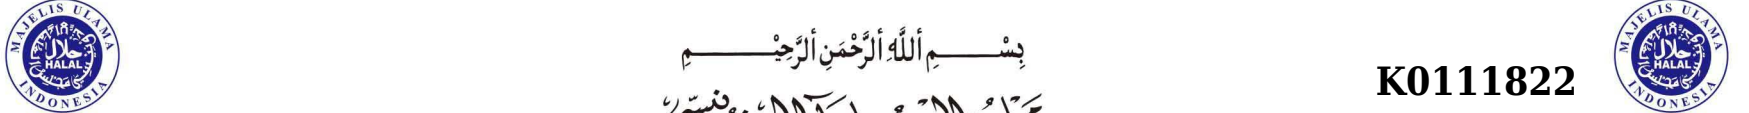 MAJELIS ULAMA INDONESIA
حلال
HALAL
بِسْــــمِ أللَّهِ ألرَّحْمَنِ ألرَّحِيْــــمِ
K0111822
MAJELIS ULAMA INDONESIA
حلال
HALAL